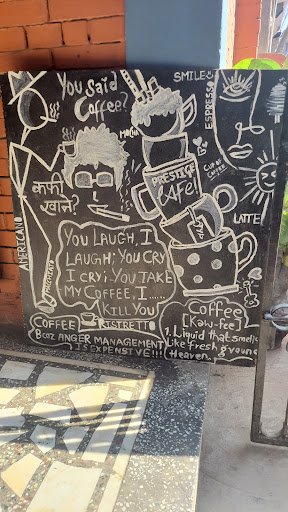 You Said
Coffee?
SMILE
ESPRESSO
MOCHA
CUP OF
COFFEE
PRESTIGE
CAFE!
कफी
खाने?
AMERICANO
MACCHIATO
LATTE
MILK
YOU LAUGH, I
LAUGH; YOU CRY
I CRY; YOU TAKE
MY COFFEE, I......
KILL YOU
COFFEE
RISTRETTO
Bcoz ANGER MANAGEMENT
IS EXPENSIVE!!!
Coffee
[Kaw-fee]
1. Liquid that smells
Like fresh ground
Heaven.